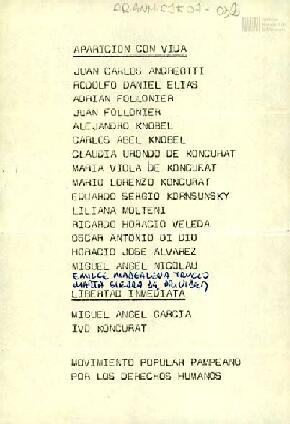 APARICION CON VIDA
JUAN CARLOS ANDREOTTI
RODOLFO DANIEL ELIAS
ADRIAN FOLLONIER
JUAN FOLLONIER
ALEJANDRO KNOBEL
CARLOS ABEL KNOBEL
CLAUDIA URONDO DE KONCURAT
MARIA VIOLA DE KONCURAT
MARIO LORENZO KONCURAT
EDUARDO SERGIO KORNSUNSKY
LILIANA MOLTENI
RICARDO HORACIO VELEDA
OSCAR ANTONIO DI DIO
HORACIO JOSE ALVAREZ
MIGUEL ANGEL NICOLAU
MAGDALENA
MARTA
LIBERTAD INMEDIATA
MIGUEL ANGEL GARCIA
IVO KONCURAT
MOVIMIENTO POPULAR PAMPEANO
POR LOS DERECHOS HUMANOS